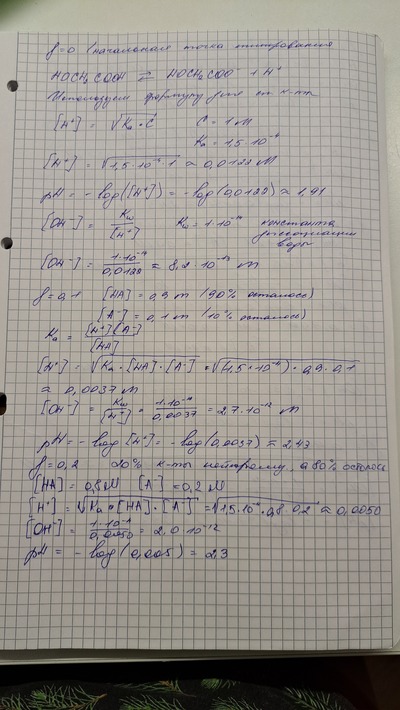 f=0 (начальная точка титрования
HOCH₂COOH ⇄ HOCH₂COO⁻ + H⁺
Используем формулу для к-ты
[H⁺] = √Ka·C   C = 1 M
Ka = 1,5·10⁻⁴
[H⁺] = √1,5·10⁻⁴·1 ≈ 0,0122 M
pH = -log([H⁺]) = -log(0,0122) ≈ 1,91
[OH⁻] = Kw/[H⁺]   Kw = 1·10⁻¹⁴   константа диссоциации воды
[OH⁻] = 1·10⁻¹⁴/0,0122 = 8,2·10⁻¹³ M
f=0,1   [HA] = 0,9 M (90% осталось)
[A⁻] = 0,1 M (10% осталось)
Ka = [H⁺][A⁻]/[HA]
[H⁺] = √Ka·[HA]·[A⁻] = √(1,5·10⁻⁴)·0,9·0,1
≈ 0,0037 M
[OH⁻] = Kw/[H⁺] = 1·10⁻¹⁴/0,0037 = 2,7·10⁻¹² M
pH = -log[H⁺] = -log(0,0037) ≈ 2,43
f=0,2   20% к-ты а 80% осталось
[HA] = 0,8 M   [A⁻] = 0,2 M
[H⁺] = √Ka·[HA]·[A⁻] = √1,5·10⁻⁴·0,8·0,2 ≈ 0,0050
[OH⁻] = 1·10⁻¹⁴/0,0050 = 2,0·10⁻¹²
pH = -log(0,005) = 2,3